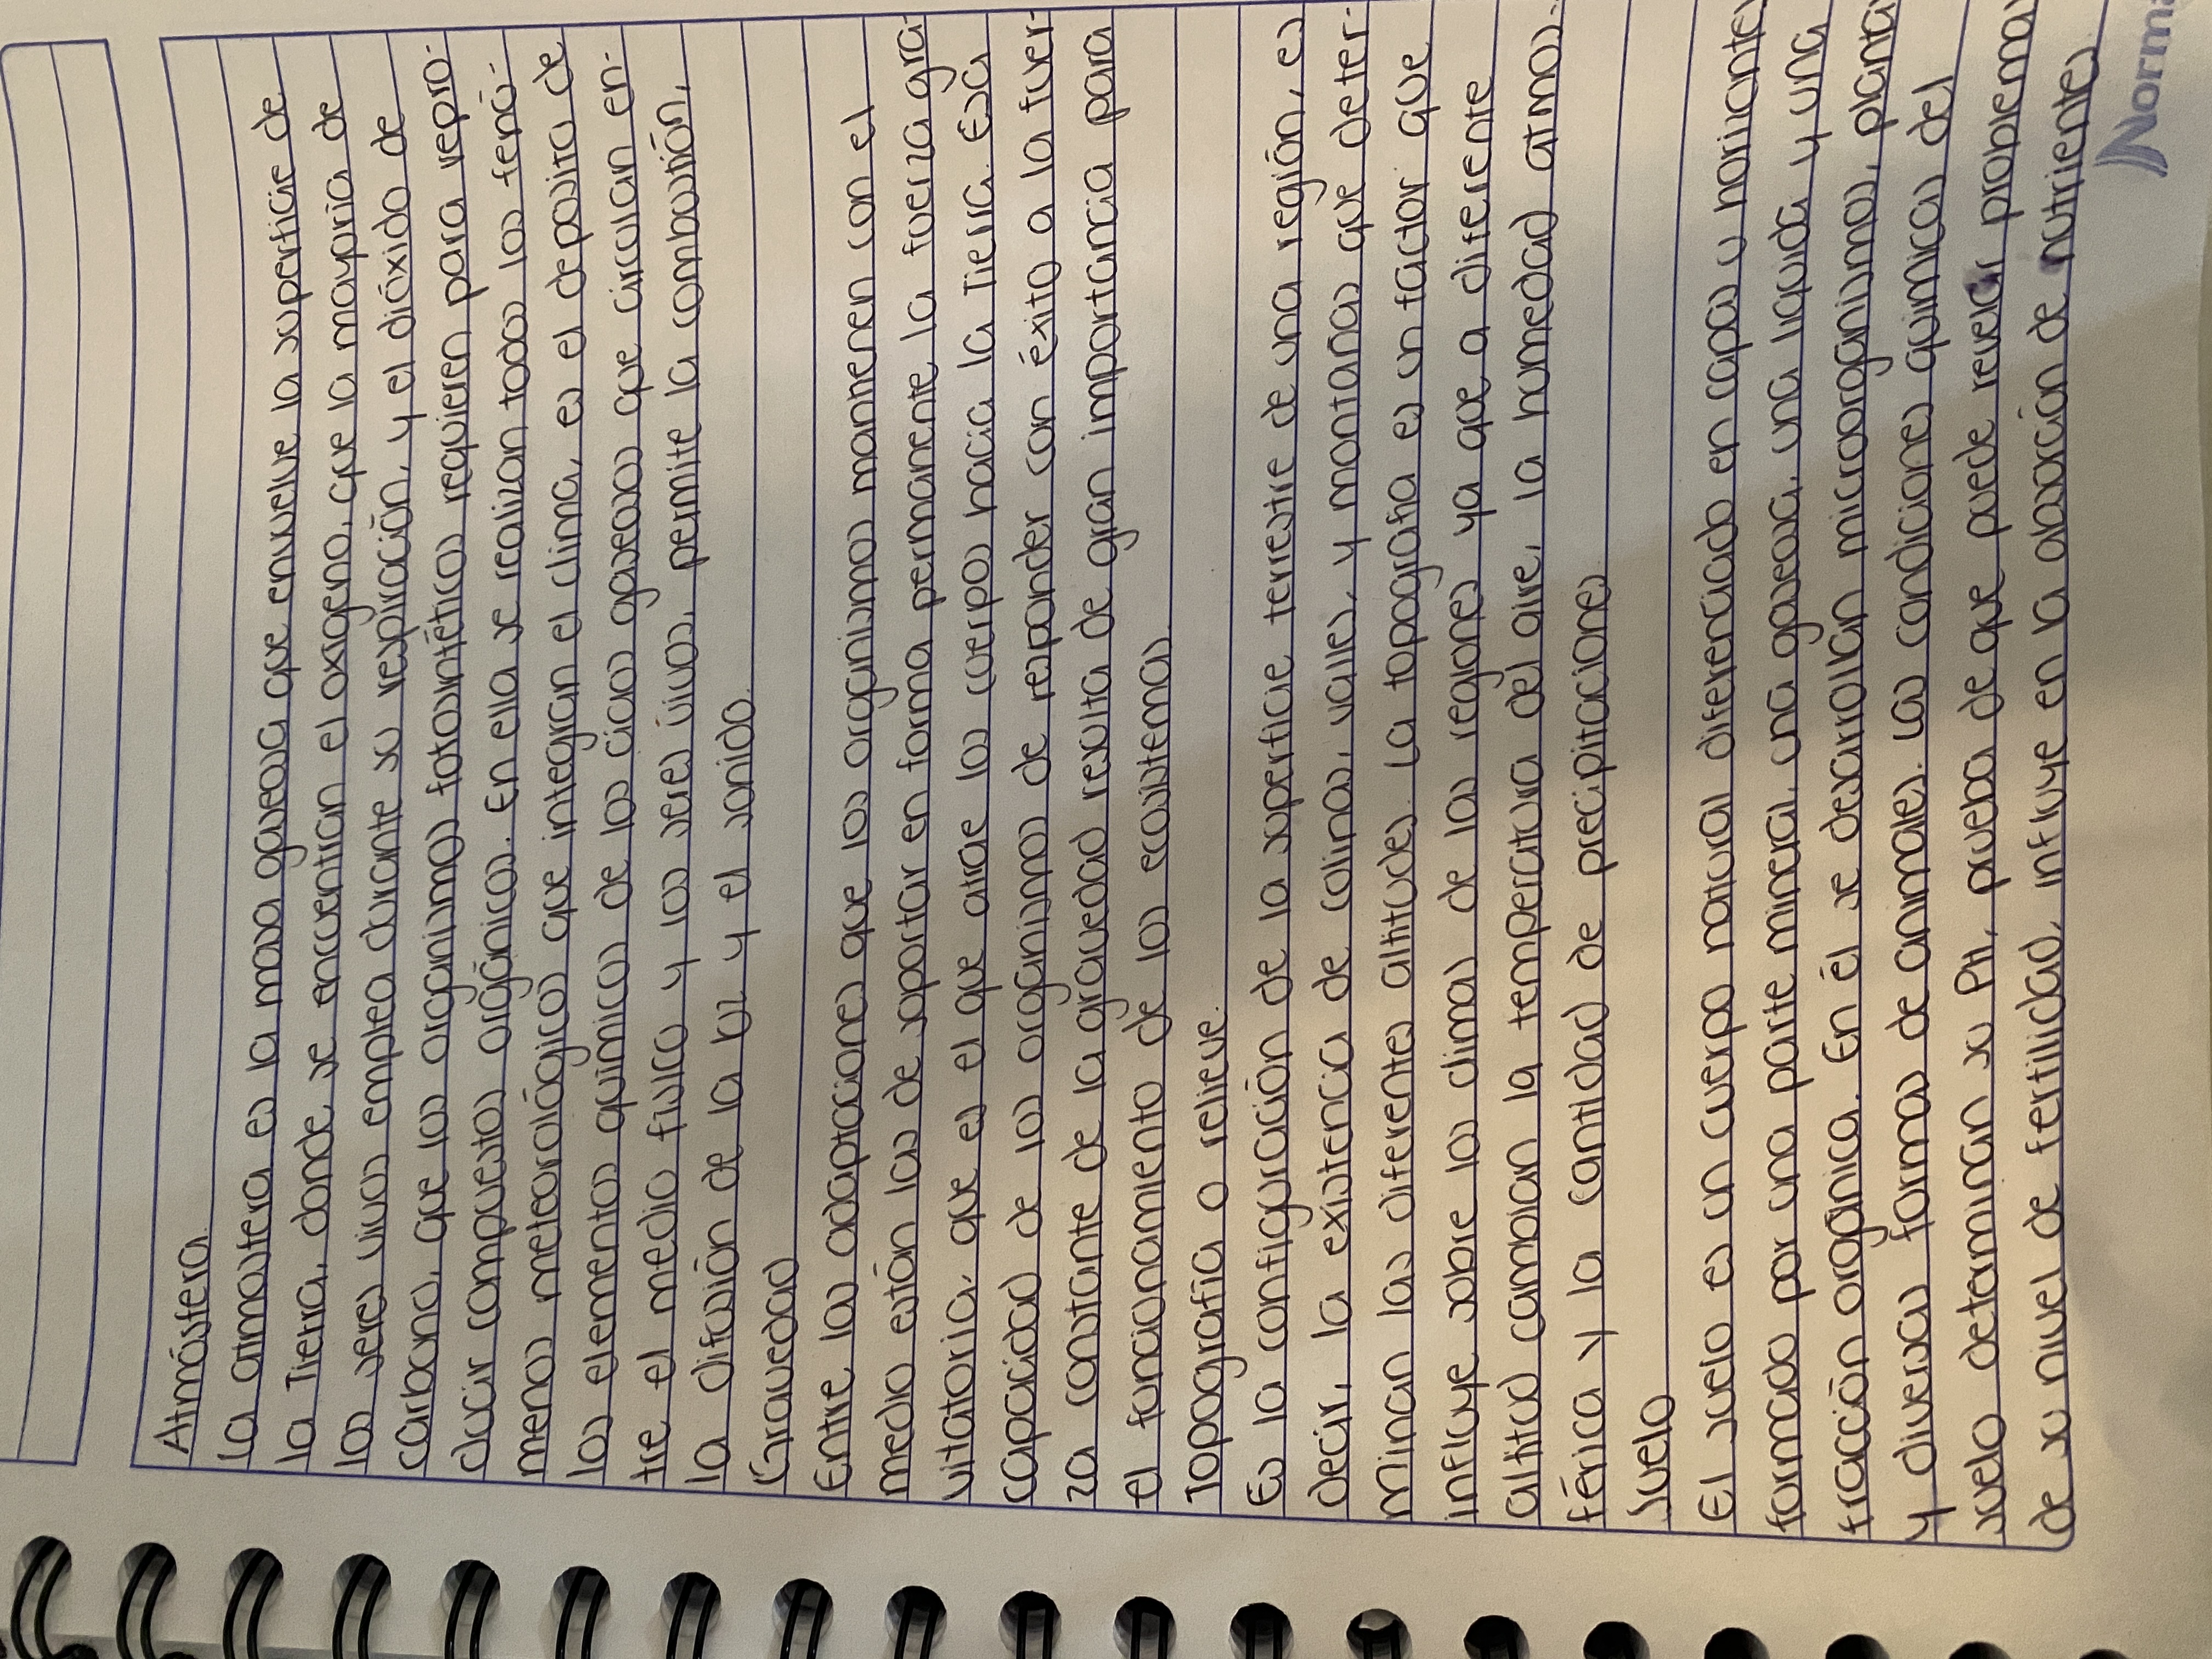 Atmósfera
La atmosfera es la masa gaseosa que envuelve la superficie de
la Tierra, donde se encuentran el oxigeno, que la mayoria de
los seres vivos emplea durante su respiración, y el dióxido de
carbono, que los organismos fotosintéticos requieren para repro-
ducir compuestos orgánicos. En ella se realizan todos los fenó-
menos meteorológicos que integran el clima, es el deposito de
los elementos quimicos de los ciclos gaseosos que circulan en-
tre el medio fisico y los seres vivos, permite la combustión,
la difusión de la luz y el sonido.
Gravedad
Entre las adaptaciones que los organismos mannenen con el
medio están las de soportar en forma permanente la fuerza gra-
vitatoria, que es el que atrae los cuerpos hacia la Tierra. Esa
capacidad de los organismos de responder con éxito a la fuer-
za constante de la gravedad resulta de gran importancia para
el funcionamiento de los ecosistemas.
Topografia o relieve.
Es la configuración de la superficie terrestre de una región, es
decir, la existencia de colinas, valles, y montañas que deter-
minan las diferentes altitudes. La topografia es un factor que
influye sobre los climas de las regiones ya que a diferente
altitud cambian la temperatura del aire, la humedad atmos-
férica y la cantidad de precipitaciones.
Suelo
El suelo es un cuerpo natural diferenciado en capas u horizontes
formado por una parte mineral, una gaseosa, una liquida y una
fracción orgánica. En él se desarrollan microorganismos, plantas
y diversas formas de animales. Las condiciones quimicas del
suelo determinan su PH, prueba de que puede revelar problemas
de su nivel de fertilidad, influye en la absorción de nutrientes
Norma